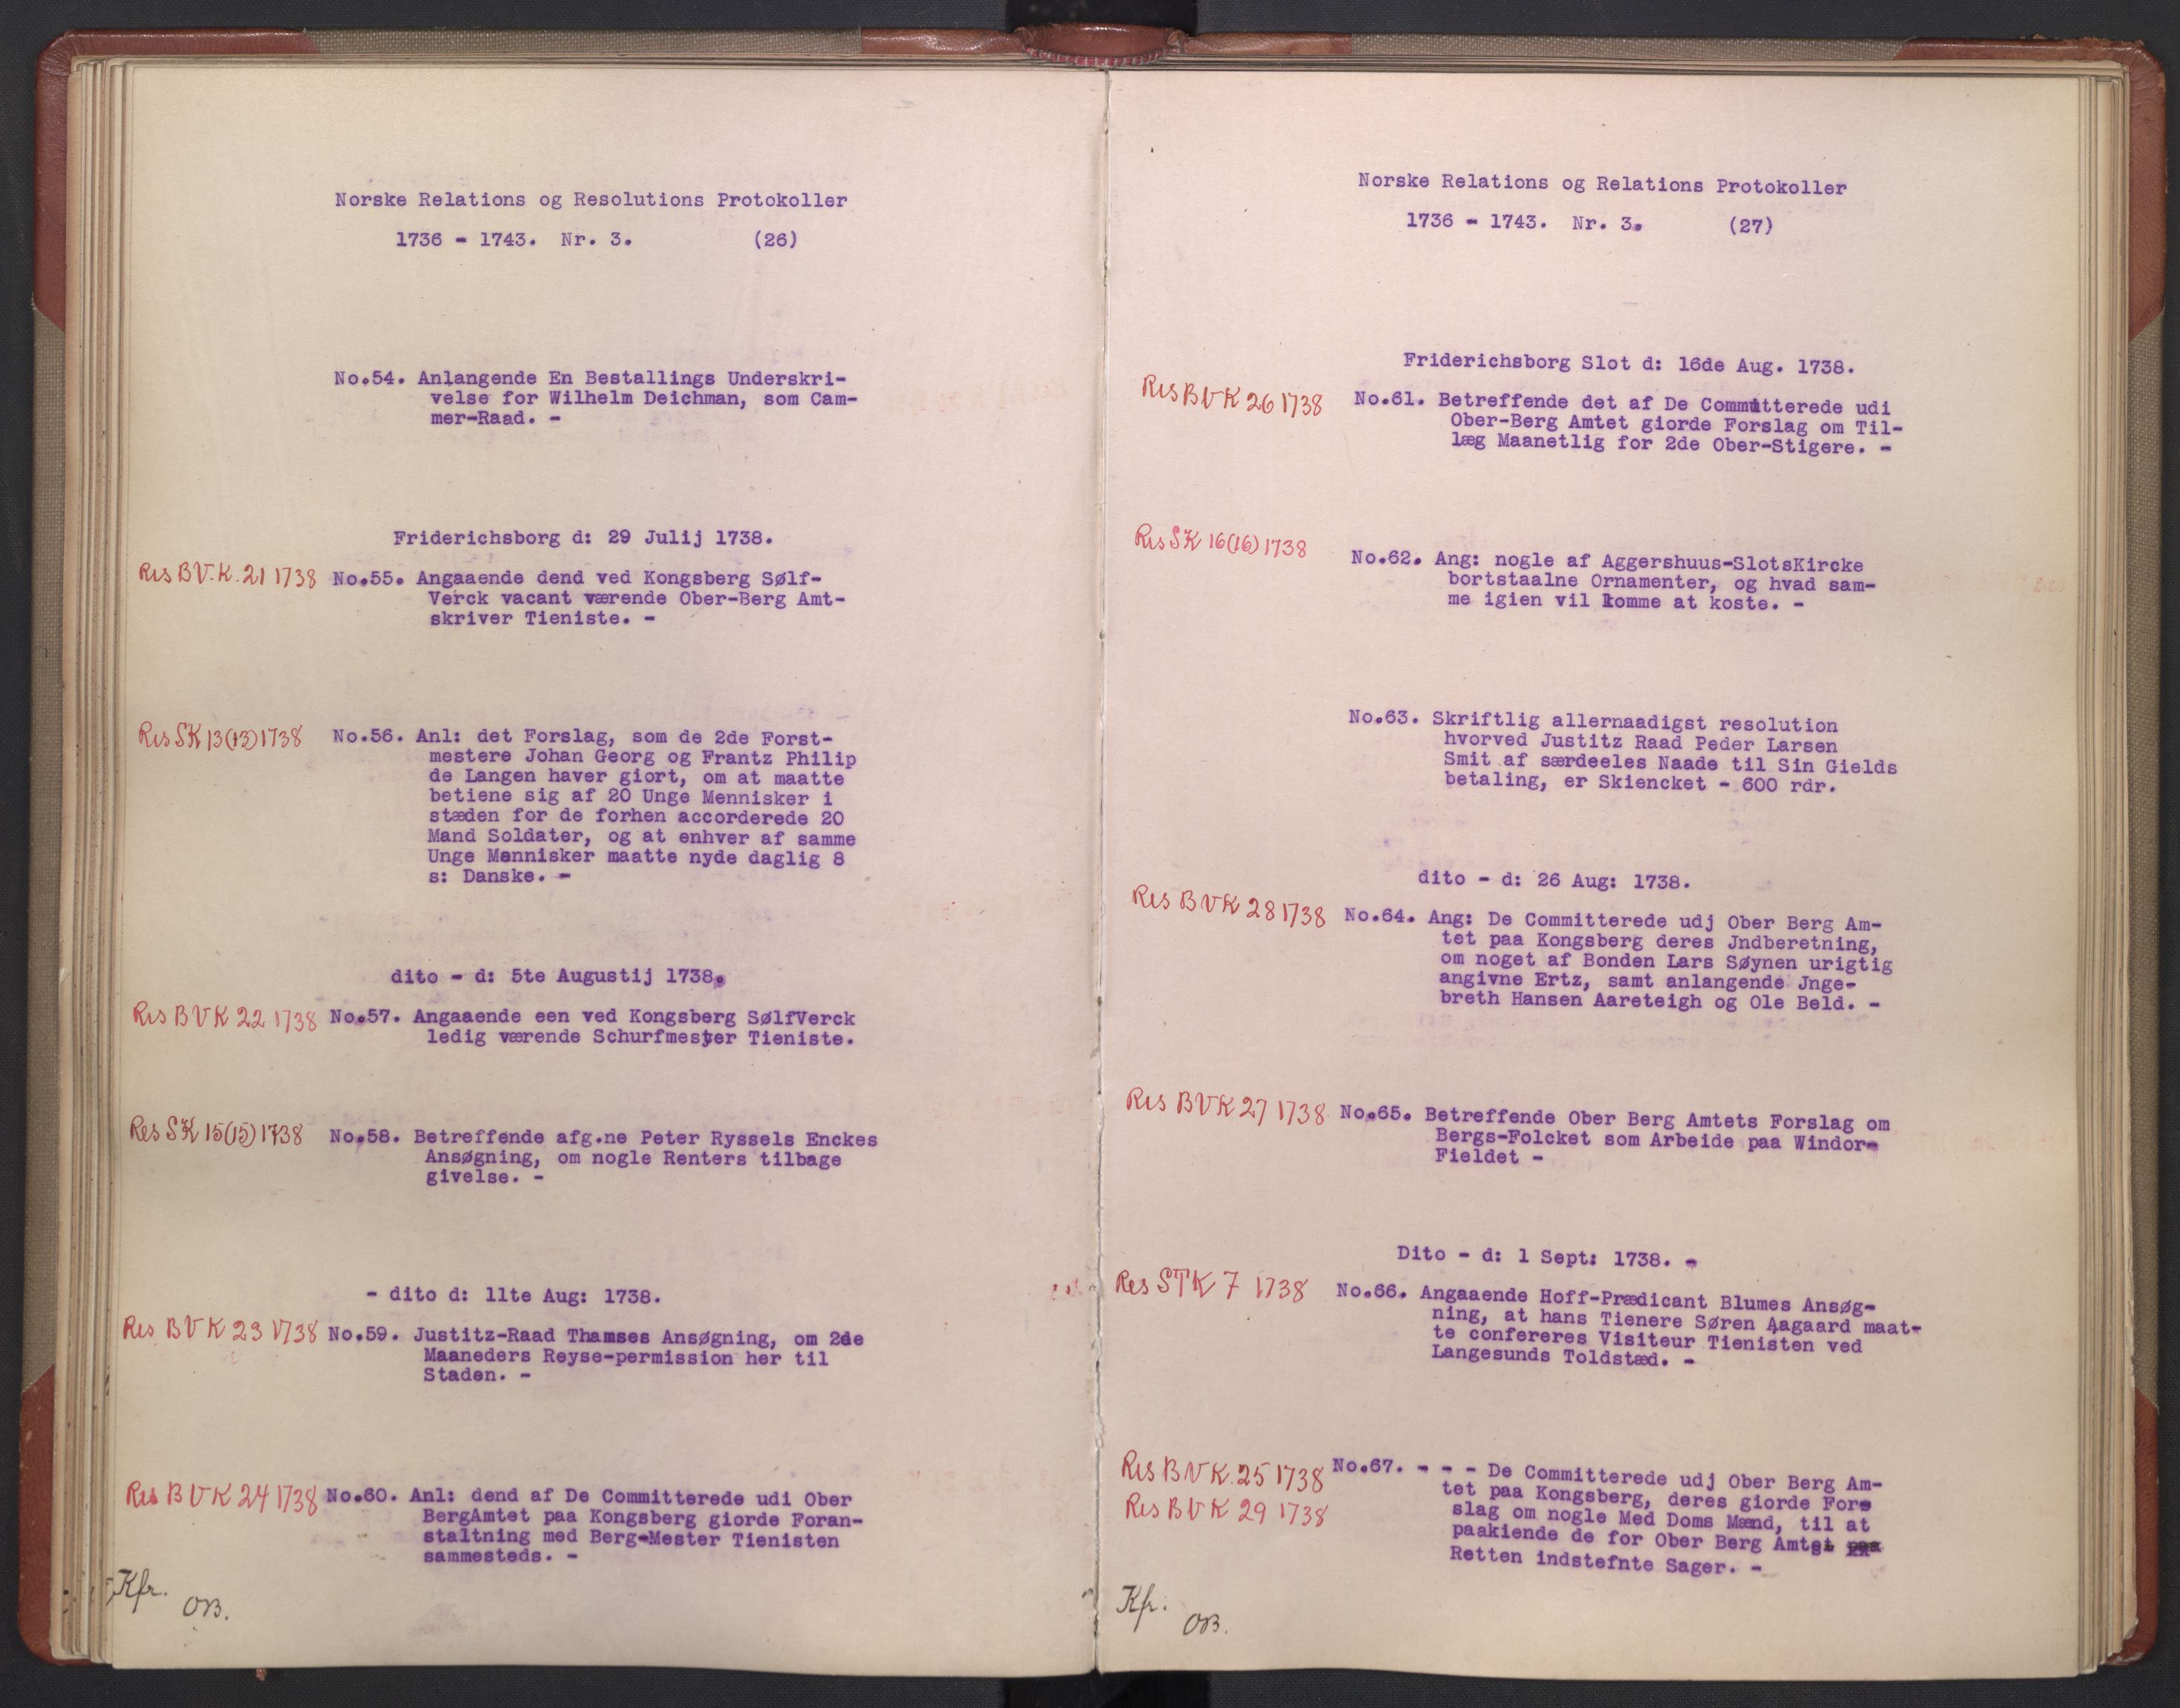 Norske Relations og Resolutions Protokoller
1736 - 1743. Nr. 3. (26)
No.54. Anlangende En Bestallings Underskri-
velse for Wilhelm Deichman, som Cam-
mer-Raad. -
Friderichsborg d: 29 Julij 1738.
Res B.V.K. 21 1738 No.55. Angaaende dend ved Kongsberg Sølf-
Verck vacant værende Ober-Berg Amt-
skriver Tieniste. -
Res SK 13(13) 1738 No.56. Anl: det Forslag, som de 2de Forst-
mestere Johan Georg og Frantz Philip
de Langen haver giort, om at maatte
betiene sig af 20 Unge Mennisker i
stæden for de forhen accorderede 20
Mand Soldater, og at enhver af samme
Unge Mennisker maatte nyde daglig 8
s: Danske. -
dito - d: 5te Augustij 1738.
Res BVK 22 1738 No.57. Angaaende een ved Kongsberg SølfVerck
ledig værende Schurfmester Tieniste.
Res SK 15(15) 1738 No.58. Betreffende afg.ne Peter Ryssels Enckes
Ansøgning, om nogle Renters tilbage
givelse. -
- dito d: 11te Aug: 1738.
Res BVK 23 1738 No.59. Justitz-Raad Thamses Ansøgning, om 2de
Maaneders Reyse-permission her til
Staden. -
Res BVK 24 1738 No.60. Anl: dend af De Committerede udi Ober
BergAmtet paa Kongsberg giorde Foran-
staltning med Berg-Mester Tienisten
sammesteds. -
Kfr.
OB.
Norske Relations og Relations Protokoller
1736 - 1743. Nr. 3. (27)
Friderichsborg Slot d: 16de Aug. 1738.
Res BVK 26 1738 No.61. Betreffende det af De Committerede udi
Ober-Berg Amtet giorde Forslag om Til-
læg Maanetlig for 2de Ober-Stigere. -
Res SK 16(16) 1738 No.62. Ang: nogle af Aggershuus-SlotsKircke
bortstaalne Ornamenter, og hvad sam-
me igien vil komme at koste. -
No.63. Skriftlig allernaadigst resolution
hvorved Justitz Raad Peder Larsen
Smit af særdeeles Naade til Sin Gields
betaling, er Skiencket - 600 rdr.
dito - d: 26 Aug: 1738.
Res BVK 28 1738 No.64. Ang: De Committerede udj Ober Berg Am-
tet paa Kongsberg deres Jndberetning,
om noget af Bonden Lars Søynen urigtig
angivne Ertz, samt anlangende Jnge-
breth Hansen Aareteigh og Ole Beld. -
Res BVK 27 1738 No.65. Betreffende Ober Berg Amtets Forslag om
Bergs-Folcket som Arbeide paa Windor-
Fieldet -
Dito - d: 1 Sept: 1738. -
Res STK 7 1738 No.66. Angaaende Hoff-Prædicant Blumes Ansøg-
ning, at hans Tienere Søren Aagaard maat-
te confereres Visiteur Tienisten ved
Langesunds Toldstæd. -
Res BVK. 25 1738 No.67. - - - De Committerede udj Ober Berg Am-
Res BVK 29 1738 tet paa Kongsberg, deres giorde For-
slag om nogle Med Doms Mænd, til at
paakiende de for Ober Berg Amtet paa
Retten indstefnte Sager. -
Kfr.
OB.